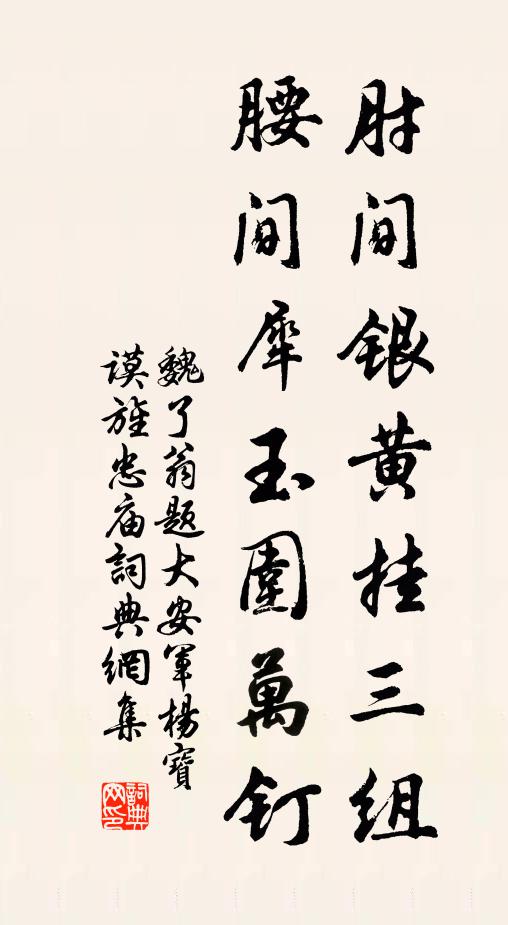 肘间银黄挂三组
腰间犀玉圍萬钉
魏了翁题大安軍楊寶
谟旌忠庙詞典網集
詞典网印